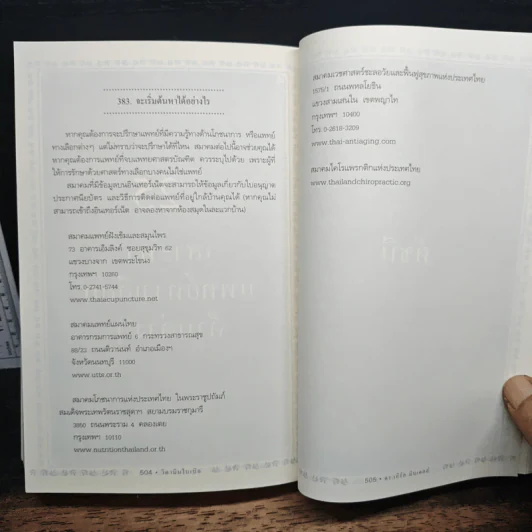 383. จะเริ่มต้นหาได้อย่างไร
หากคุณต้องการจะปรึกษาแพทย์ที่มีความรู้ทางด้านโภชนาการ หรือแพทย์
ทางเลือกต่างๆ แต่ไม่ทราบว่าจะปรึกษาได้ที่ไหน สมาคมต่อไปนี้อาจช่วยคุณได้
หากคุณต้องการแพทย์ที่จบแพทยศาสตรบัณฑิต ควรระบุไปด้วย เพราะผู้ที่
ให้การรักษาด้วยศาสตร์ทางเลือกบางคนไม่ใช่แพทย์
สมาคมที่มีข้อมูลบนอินเทอร์เน็ตจะสามารถให้ข้อมูลเกี่ยวกับใบอนุญาต
ประกาศนียบัตร และวิธีการติดต่อแพทย์ที่อยู่ใกล้บ้านคุณได้ (หากคุณไม่
สามารถเข้าถึงอินเทอร์เน็ต อาจลองหาจากห้องสมุดในละแวกบ้าน)
สมาคมแพทย์ฝังเข็มและสมุนไพร
73 อาคารอิ่มลิ้งค์ ซอยสุขุมวิท 62
แขวงบางจาก เขตพระโขนง
กรุงเทพฯ 10260
โทร. 0-2741-5744
www.thaiacupuncture.net
สมาคมแพทย์แผนไทย
อาคารกรมการแพทย์ 6 กระทรวงสาธารณสุข
88/23 ถนนติวานนท์ อำเภอเมืองฯ
จังหวัดนนทบุรี 11000
www.utts.or.th
สมาคมโภชนาการแห่งประเทศไทย ในพระราชูปถัมภ์
สมเด็จพระเทพรัตนราชสุดาฯ สยามบรมราชกุมารี
3850 ถนนพระราม 4 คลองเตย
กรุงเทพฯ 10110
www.nutritionthailand-or.th
504 • วิตามินไบเบิล
สมาคมเวชศาสตร์ชะลอวัยและฟื้นฟูสุขภาพแห่งประเทศไทย
1979/1 ถนนพหลโยธิน
แขวงสามเสนใน เขตพญาไท
กรุงเทพฯ 10400
โทร. 0-2619-3209
www.thai-antiaging.com
สมาคมไคโรแพรกติกแห่งประเทศไทย
www.thailandchiropractic.org
505 • ดร.เอิร์ล มินเดลล์